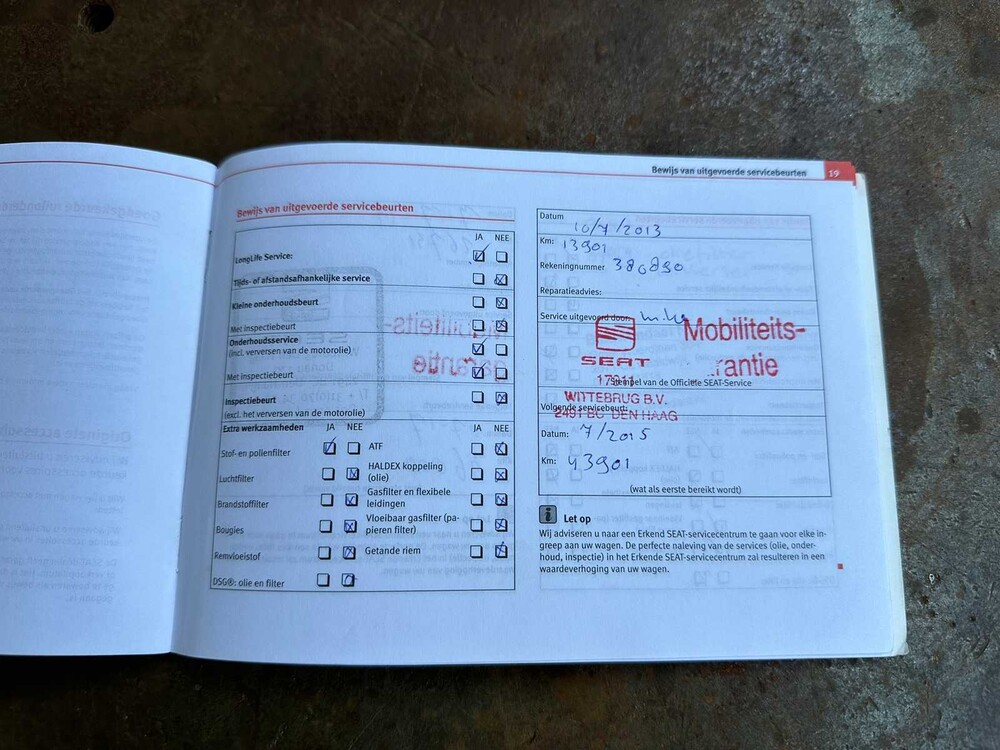 Bewijs van uitgevoerde servicebeurten 19
Bewijs van uitgevoerde servicebeurten
JA NEE
LongLife Service:
Tijds- of afstandsafhankelijke service
Kleine onderhoudsbeurt
Met inspectiebeurt
Onderhoudsservice
(incl. verversen de motorolie)
Met inspectiebeurt
Inspectiebeurt
(excl. het verversen van de motorolie)
Extra werkzaamheden JA NEE JA NEE
Stof- en pollenfilter
Luchtfilter
Brandstoffilter
Bougies
Remvloeistof
DSG®: olie en filter
ATF
HALDEX koppeling
(olie)
Gasfilter en flexibele
leidingen
Vloeibaar gasfilter (pa-
pieren filter)
Getande riem
Datum
10/7/2013
Km: 13901
Rekeningnummer 380890
Reparatieadvies:
Service uitgevoerd door:
Mobiliteits-
rantie
SEAT
Stempel van de Officiële SEAT-Service
WITTEBRUG B.V.
Volgende servicebeurt:
2491 BG DEN HAAG
Datum: 7/2015
Km: 43901
(wat als eerste bereikt wordt)
i Let op
Wij adviseren u naar een Erkend SEAT-servicecentrum te gaan voor elke in-
greep aan uw wagen. De perfecte naleving van de services (olie, onder-
houd, inspectie) in het Erkend SEAT-servicecentrum zal resulteren in een
waardeverhoging van uw wagen.